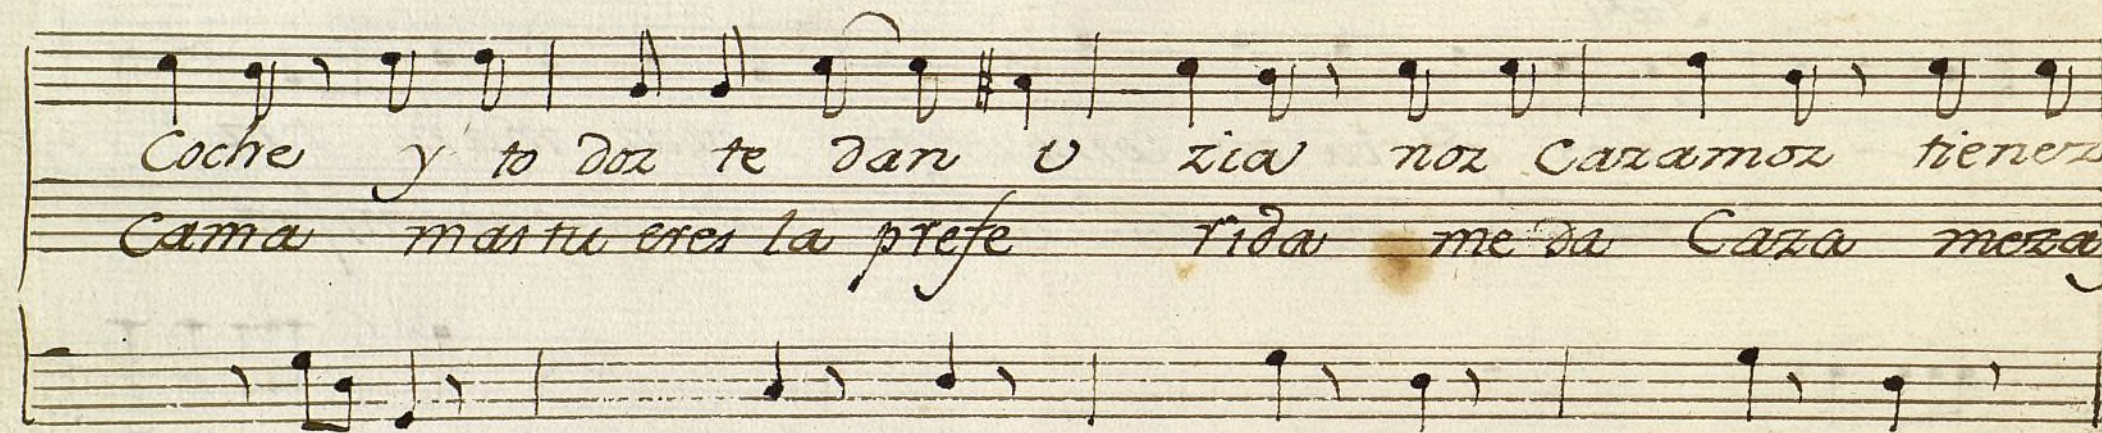 Coche y to doz te dan v zia noz Cazamoz tienez
Cama mas tu eres la prefe rida me da Caza meza